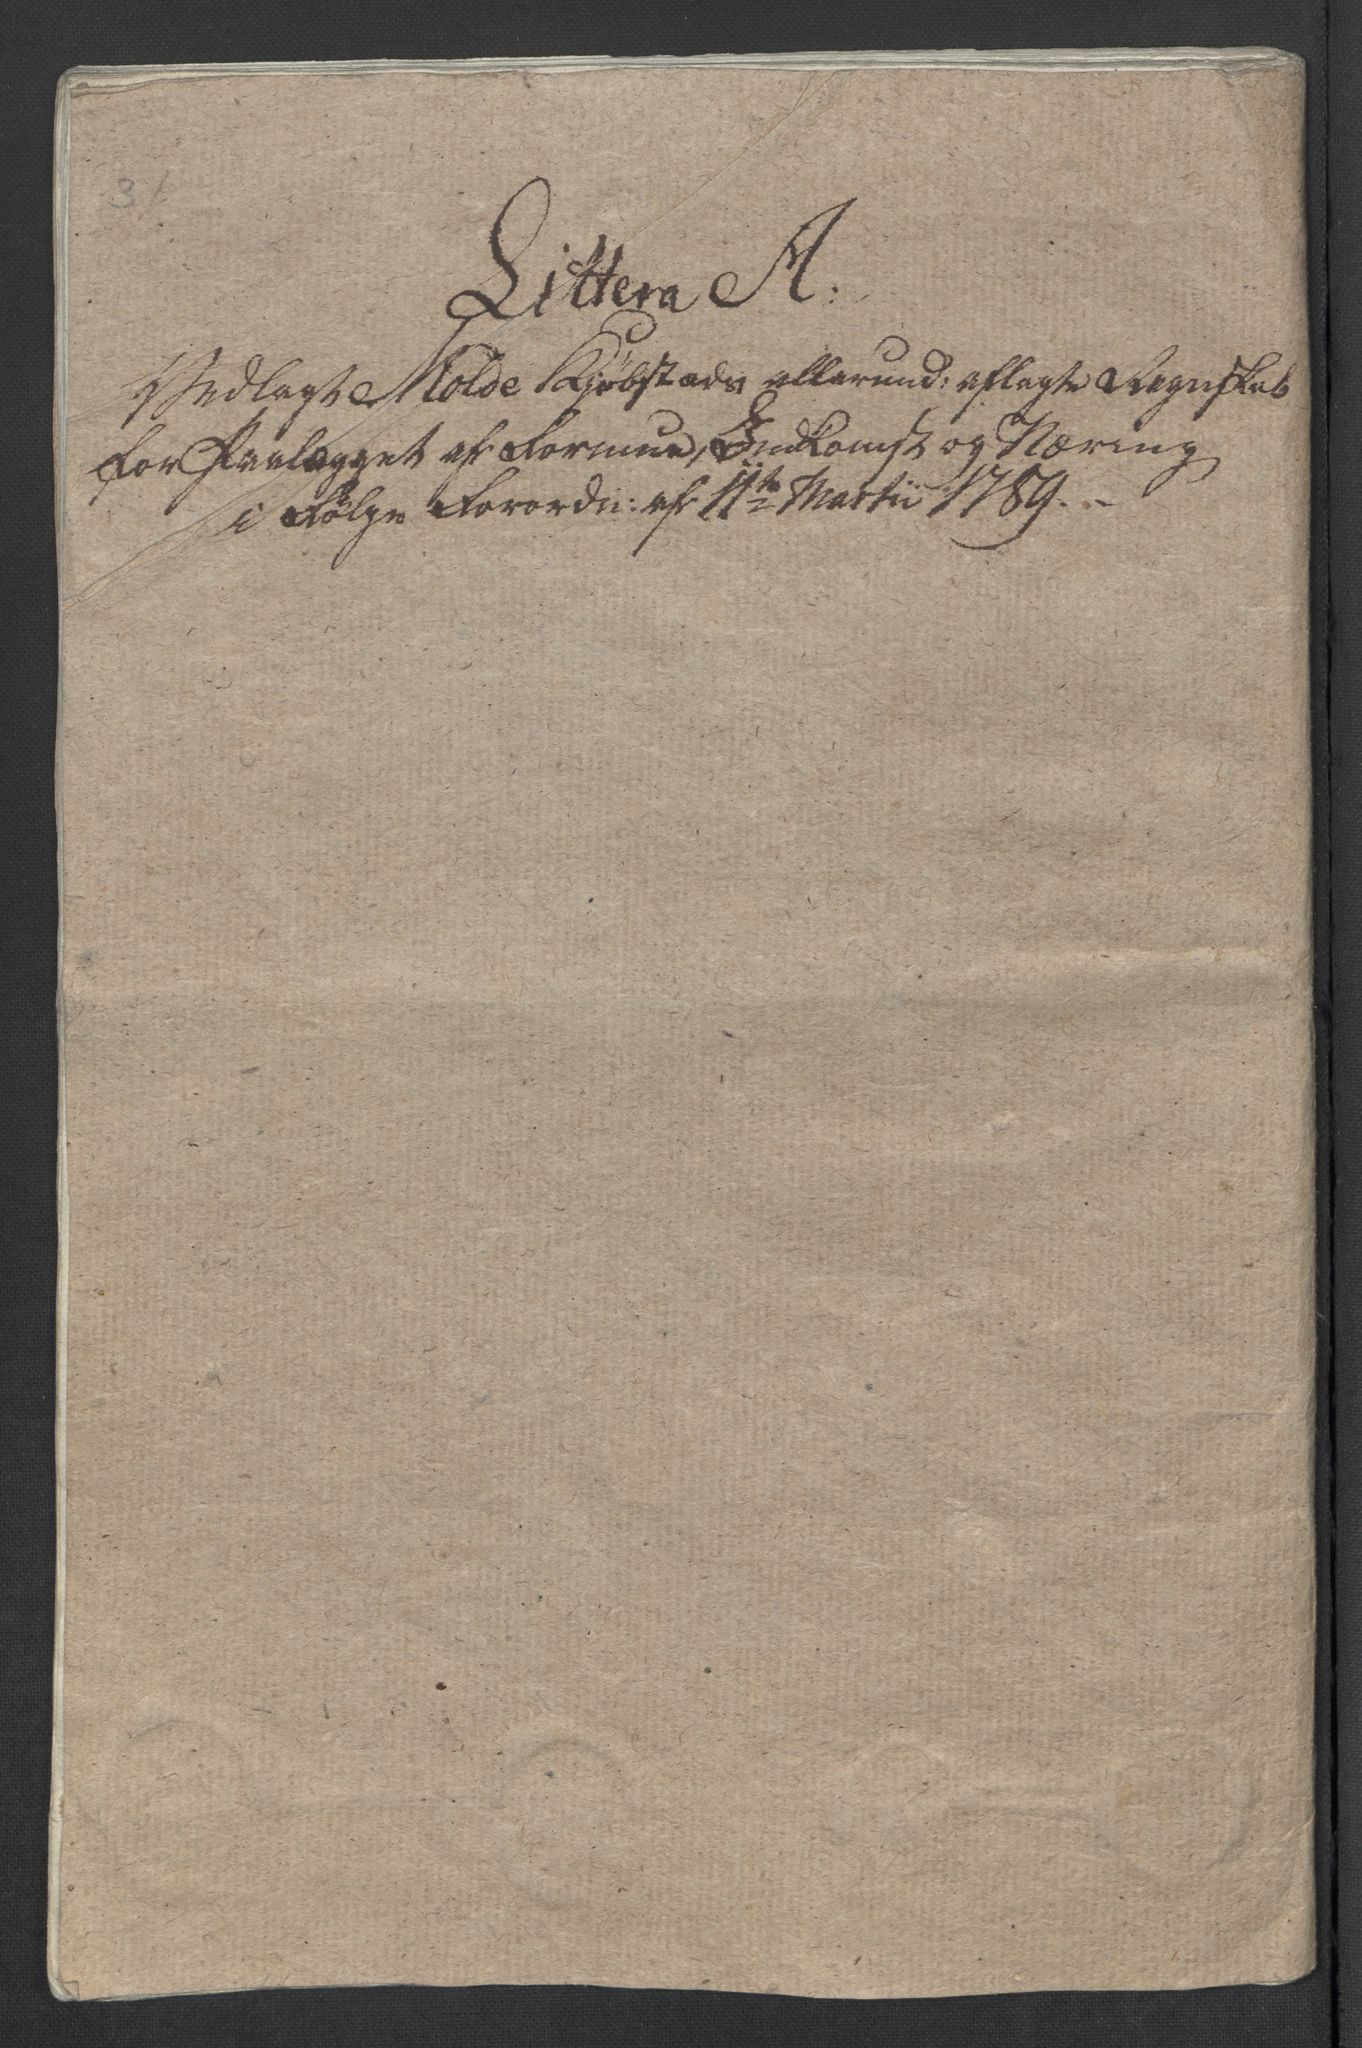 31
Littera A:
Vedlagt Molde Kjøbstads allerund: aflagte Regnskab
for Paalægget af Formue, Indkomst og Næring
i Følge Forordn: af 11te Martii 1789.